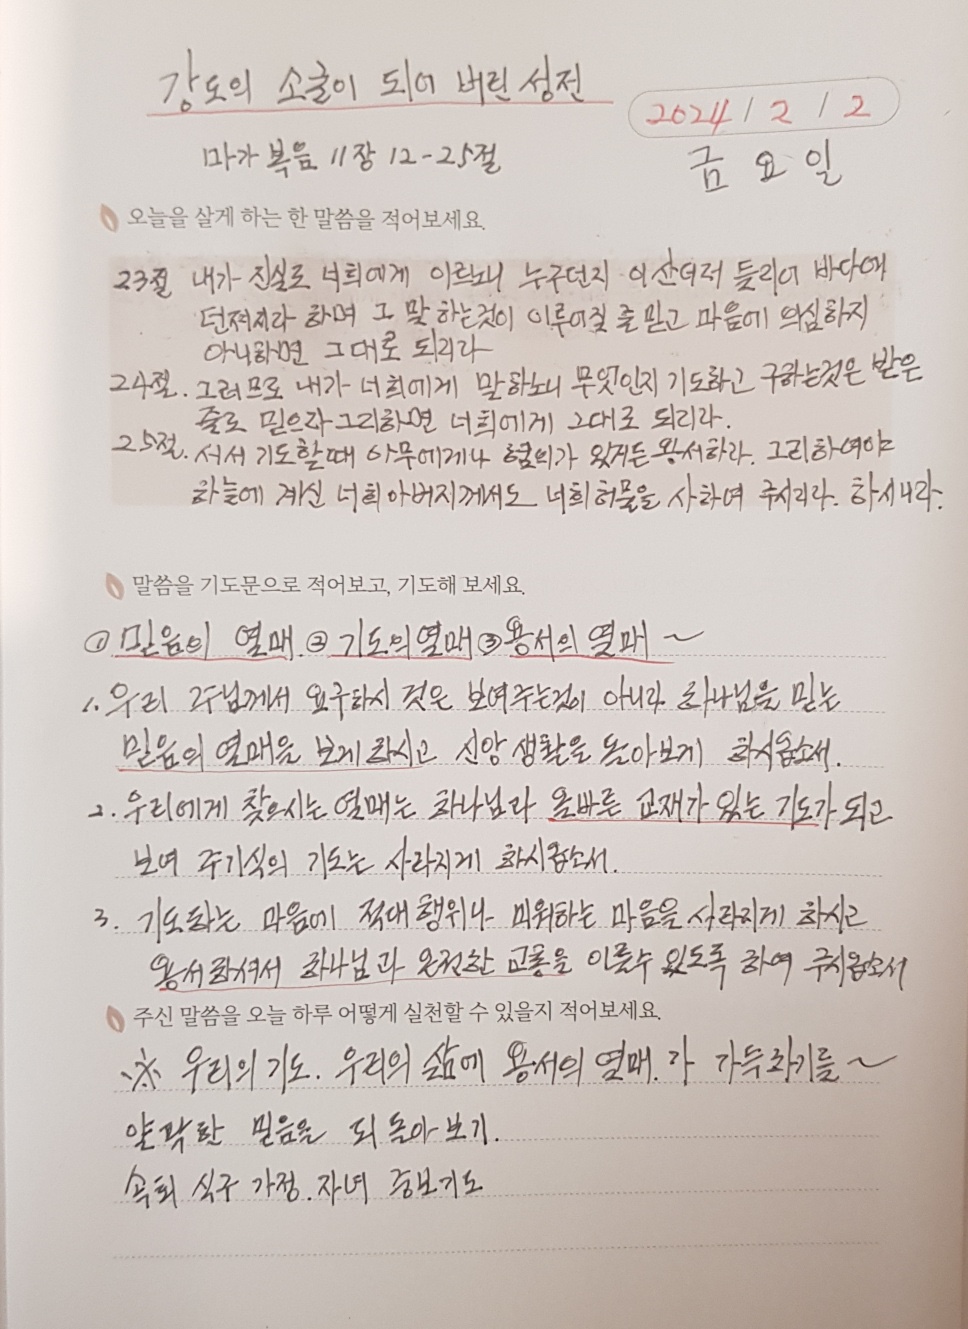 강도의 소굴이 되어 버린 성전
2024 / 2 / 2
마가복음 11장 12-25절
금요일
오늘을 살게 하는 한 말씀을 적어보세요.
23절 내가 진실로 너희에게 이르노니 누구던지 이 산더러 들리어 바다에
던져지라 하며 그 말 하는것이 이루어질 줄 믿고 마음에 의심하지
아니하면 그대로 되리라
24절. 그러므로 내가 너희에게 말하노니 무엇인지 기도하고 구하는것은 받은
줄로 믿으라 그리하면 너희에게 그대로 되리라.
25절. 서서 기도할때 아무에게나 혐의가 있거든 용서하라. 그리하여야
하늘에 계신 너희 아버지께서도 너희 허물을 사하여 주시리라. 하시니라.
말씀을 기도문으로 적어보고, 기도해 보세요.
① 믿음의 열매. ② 기도의 열매 ③ 용서의 열매 ~
1. 우리 주님께서 요구하시 것은 보여주는것이 아니라 하나님을 믿는
믿음의 열매을 보게 하시고 신앙 생활을 돌아보게 하시옵소서.
2. 우리에게 찾으시는 열매는 하나님과 올바른 교재가 있는 기도가 되고
보여 주기식의 기도는 사라지게 하시옵소서.
3. 기도하는 마음에 적대 행위나 미워하는 마음을 사라지게 하시고
용서하셔서 하나님과 온전한 교통을 이룰수 있도록 하여 주시옵소서
주신 말씀을 오늘 하루 어떻게 실천할 수 있을지 적어보세요.
※ 우리의 기도. 우리의 삶에 용서의 열매. 가 가득하기를 ~
얄팍한 믿음을 되돌아 보기.
속회 식구 가정. 자녀 중보기도